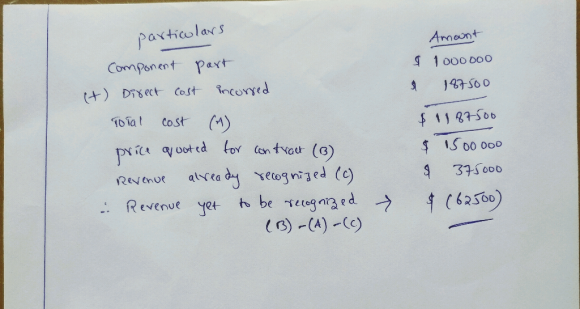 particulars Amount
Component part $ 1000000
(+) Direct cost incurred $ 187500
Total cost (A) $ 1187500
price quoted for contract (B) $ 1500000
Revenue already recognized (C) $ 375000
∴ Revenue yet to be recognized → $ (62500)
(B) - (A) - (C)